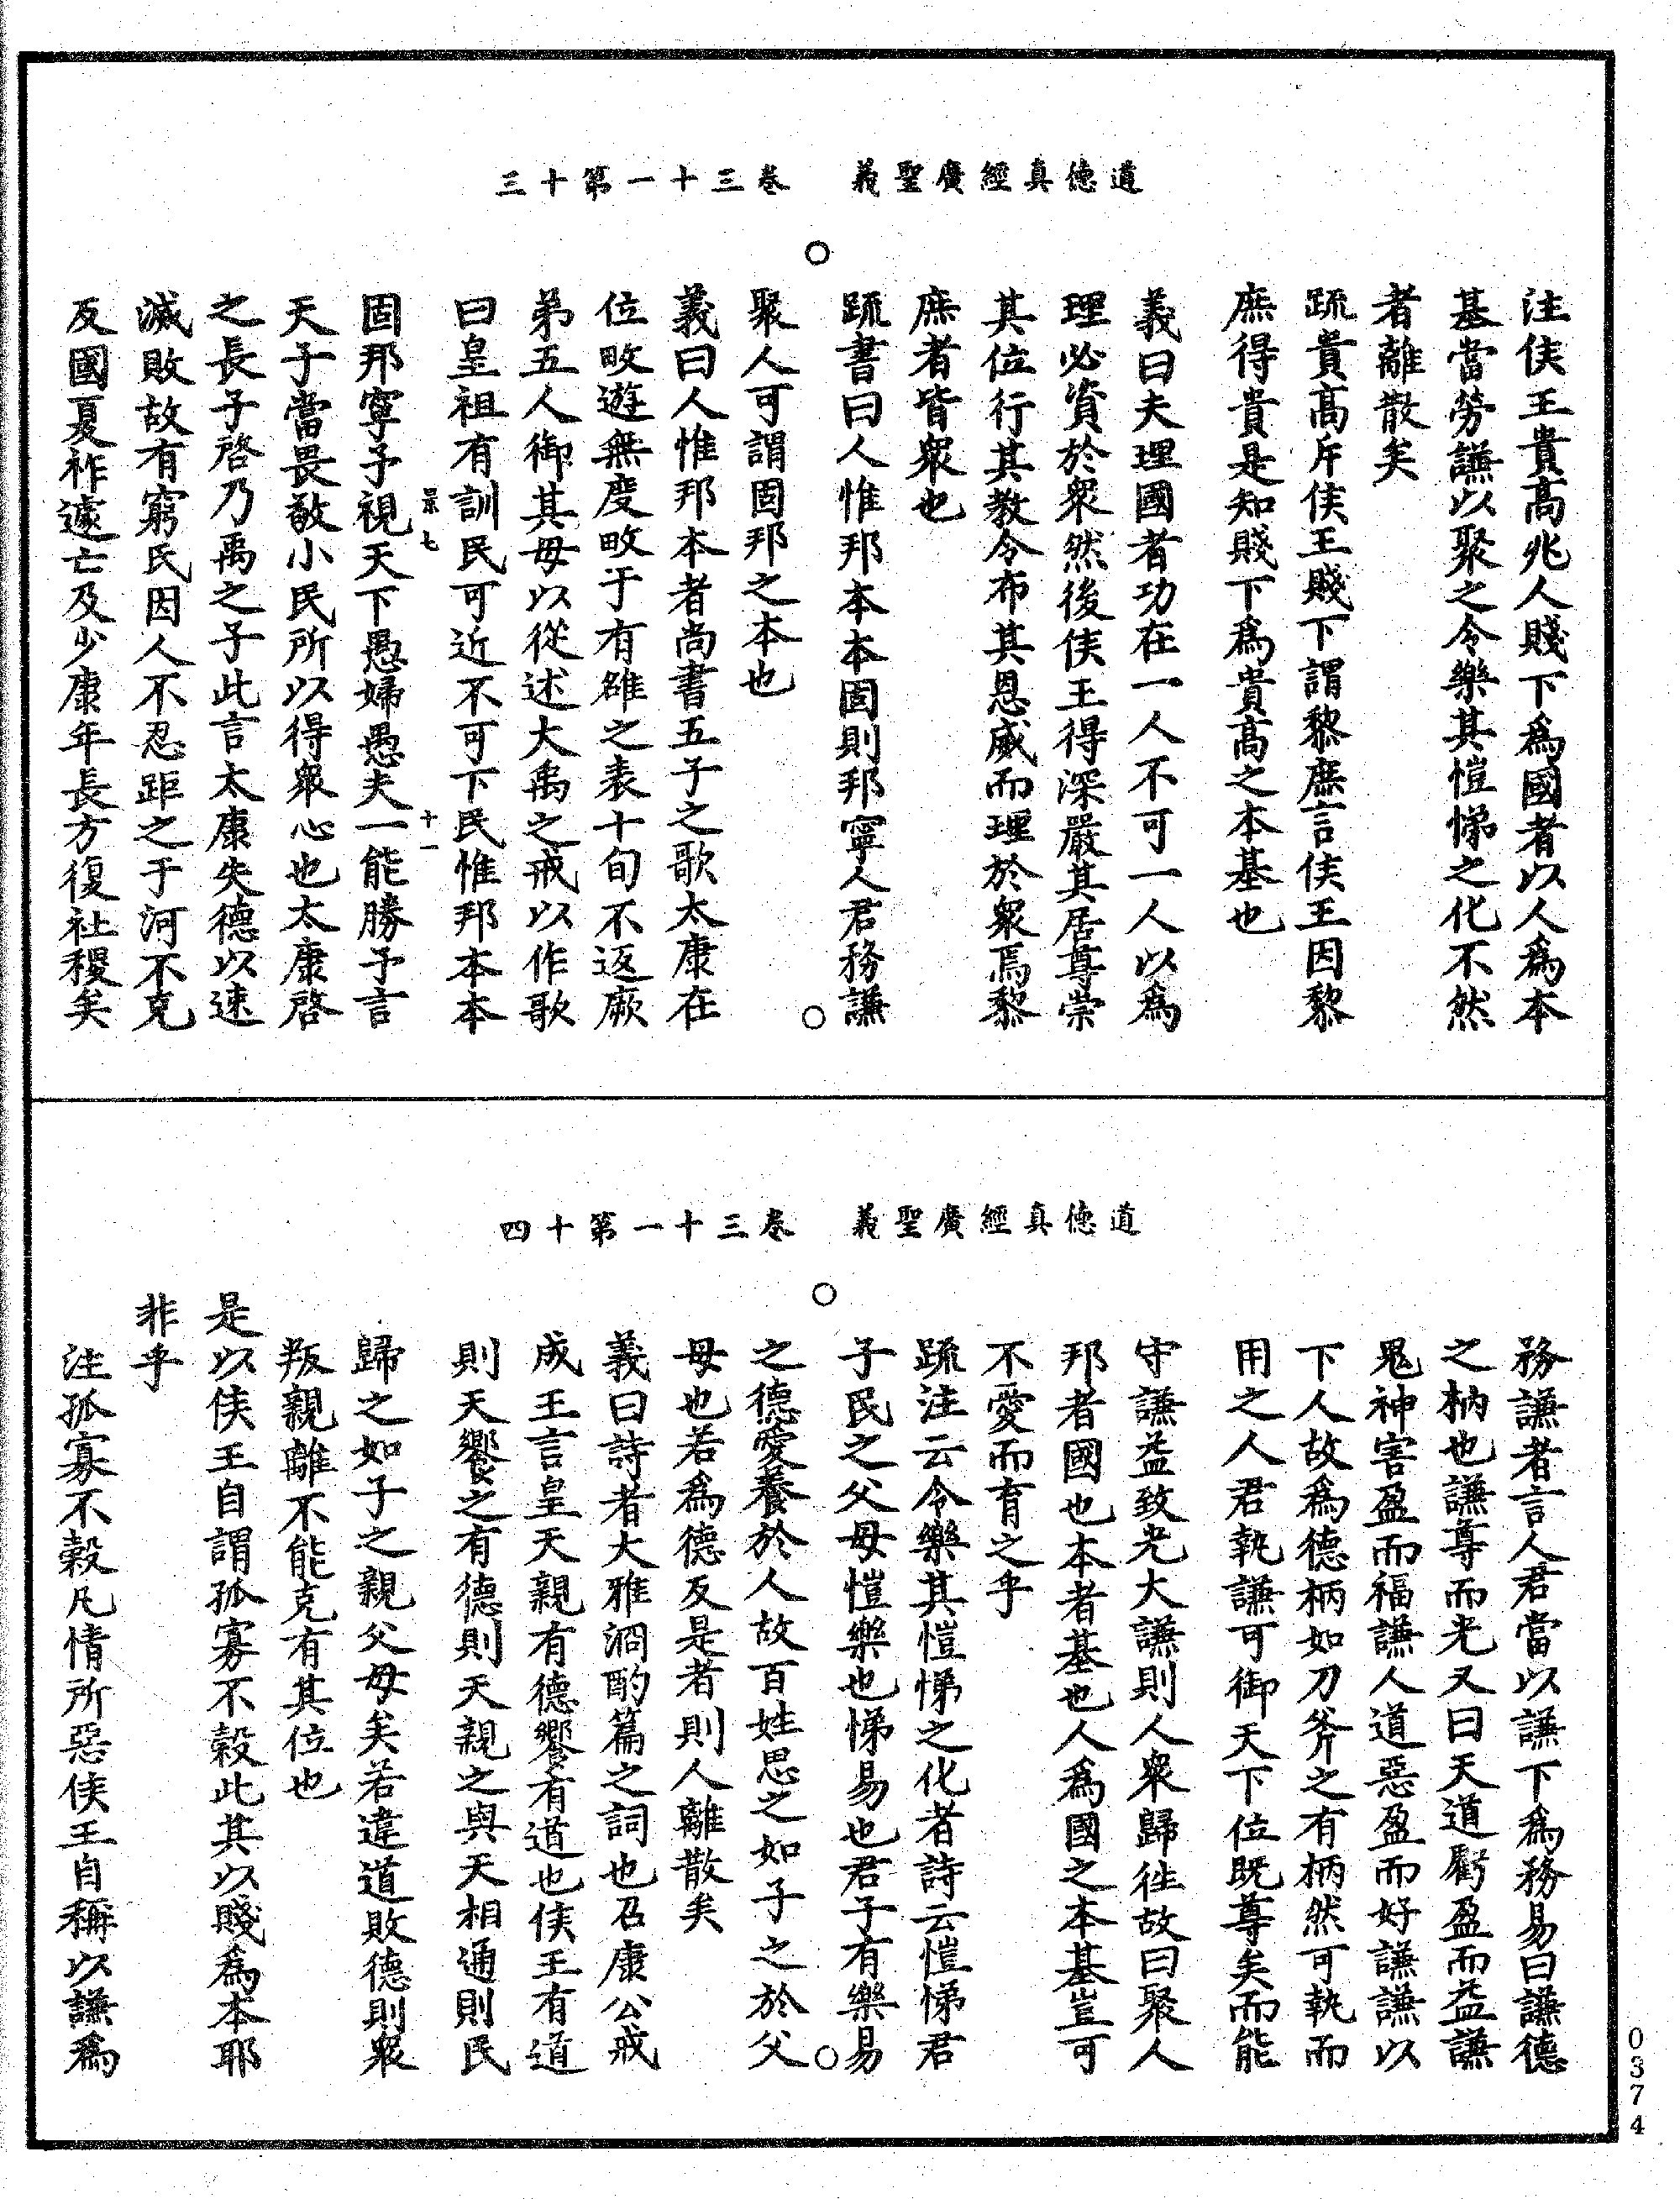 道德真經廣聖義　卷三十一第十三
注侯王貴高兆人賤下為國者以人為本
基當勞謙以聚之令樂其愷悌之化不然
者離散矣
䟽貴高斥侯王賤下謂黎庶言侯王因黎
庶得貴是知賤下為貴高之本基也
義曰夫理國者功在一人不可一人以為
理必資於衆然後侯王得深嚴其居尊崇
其位行其教令布其恩威而理於衆焉黎
庶者皆衆也
䟽書曰人惟邦本本固則邦寧人君務謙
聚人可謂固邦之本也
義曰人惟邦本者尚書五子之歌太康在
位畋遊無度畋于有雒之表十旬不返厥
弟五人御其母以從述大禹之戒以作歌
曰皇祖有訓民可近不可下民惟邦本本
景七　十一
固邦寧予視天下愚婦愚夫一能勝予言
天子當畏敬小民所以得衆心也太康啓
之長子啓乃禹之子此言太康失德以速
滅敗故有窮氏因人不忍距之于河不克
反國夏祚遽亡及少康年長方復社稷矣
道德真經廣聖義　卷三十一第十四
務謙者言人君當以謙下為務易曰謙德
之柄也謙尊而光又曰天道虧盈而益謙
鬼神害盈而福謙人道惡盈而好謙謙以
下人故為德柄如刀斧之有柄然可執而
用之人君執謙可御天下位既尊矣而能
守謙益致光大謙則人衆歸往故曰聚人
邦者國也本者基也人為國之本基豈可
不愛而育之乎
䟽注云令樂其愷悌之化者詩云愷悌君
子民之父母愷樂也悌易也君子有樂易
之德愛養於人故百姓思之如子之於父
母也若為德反是者則人離散矣
義曰詩者大雅泂酌篇之詞也召康公戒
成王言皇天親有德饗有道也侯王有道
則天饗之有德則天親之與天相通則民
歸之如子之親父母矣若違道敗德則衆
叛親離不能克有其位也
是以侯王自謂孤寡不穀此其以賤為本耶
非乎
注孤寡不穀凡情所惡侯王自稱以謙為
0374